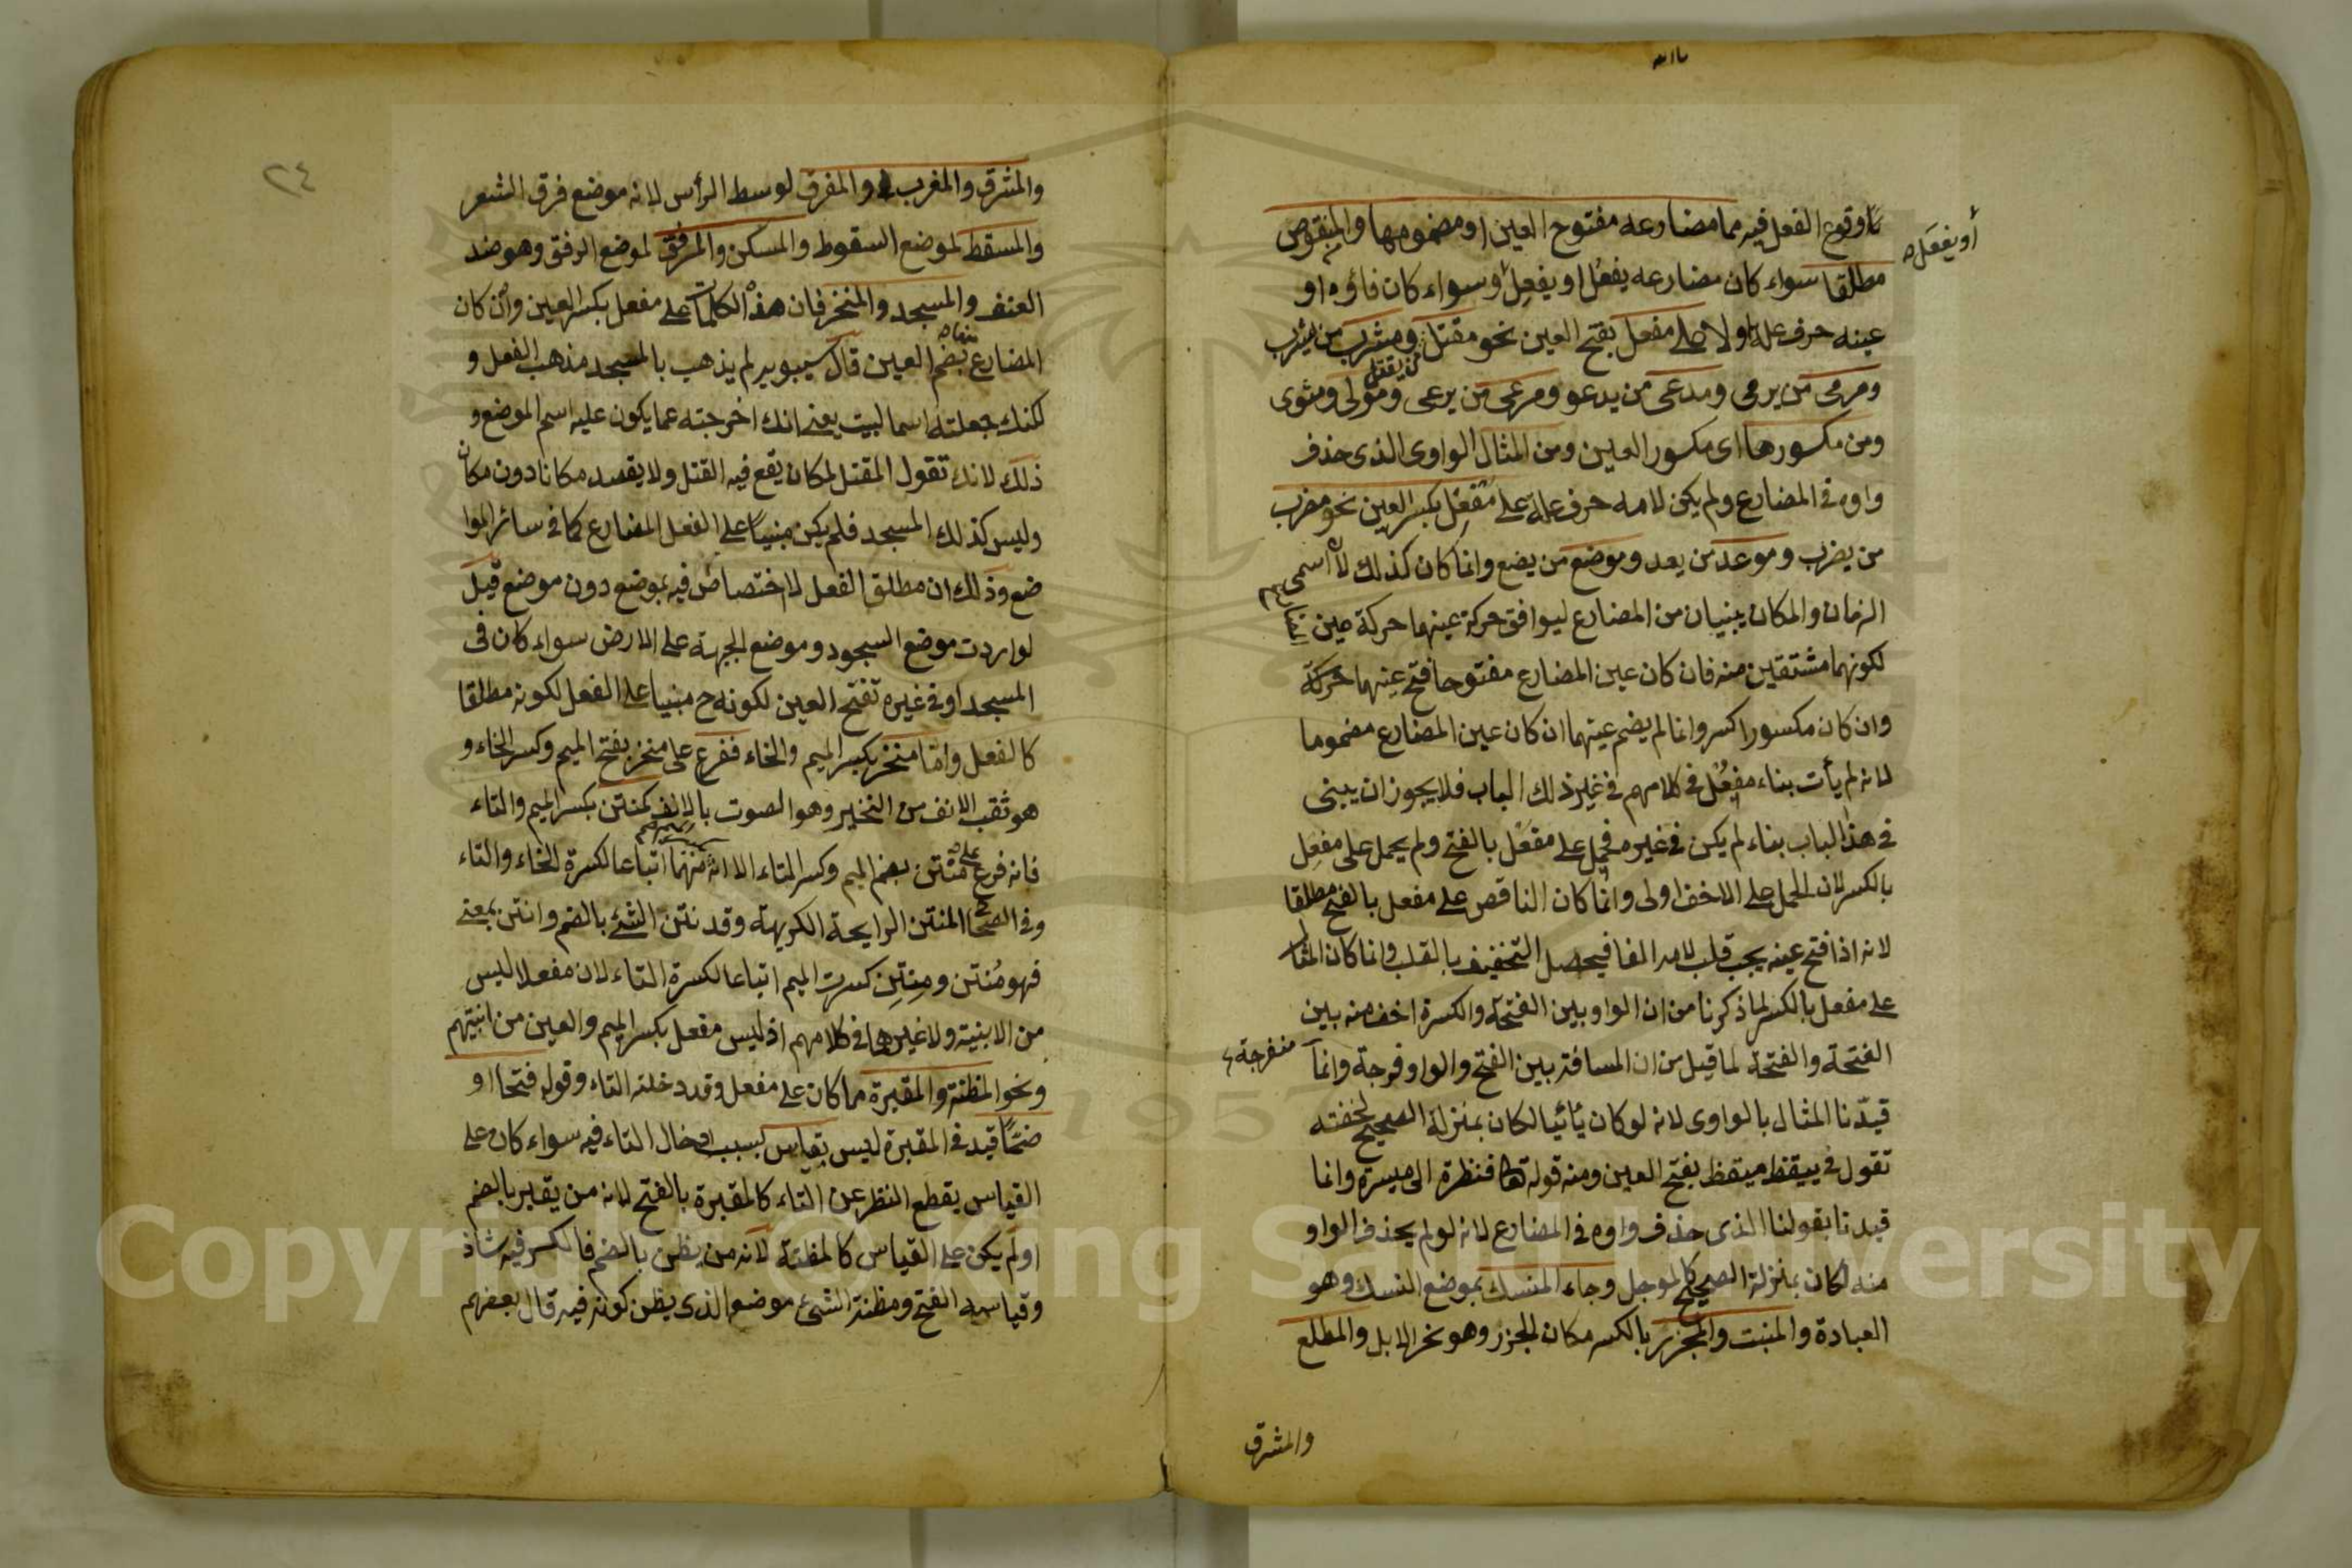 وقوع الفعل فيه مما مضارعه مفتوح العين او مضمومها والمنقوص
أو يفعَل
مطلقا سواء كان مضارعه يفعُل او يفعِل وسواء كان فاؤه او
عينه حرف علة اولا على مفعل بفتح العين نحو مقتل ومشرب من يشرب
من يقتل
ومرمى من يرمى ومدعى من يدعو ومرعى من يرعى ومولى ومثوى
ومن مكسورها اى مكسور العين ومن المثال الواوى الذى حذف
واوه فى المضارع ولم يكن لامه حرف علة على مفعِل بكسر العين نحو مضرب
من يضرب وموعد من يعد وموضع من يضع وانما كان كذلك لان اسمى
الزمان والمكان يبنيان من المضارع ليوافق حركة عينهما حركة عين
لكونهما مشتقين منه فان كان عين المضارع مفتوحا فتح عينهما حركة
وان كان مكسورا كسر وانما لم يضم عينهما ان كان عين المضارع مضموما
لانه لم يأت بناء مفعُل فى كلامهم فى غير ذلك الباب فلا يجوز ان يبنى
فى هذا الباب بناء لم يكن فى غيره فحمل على مفعَل بالفتح ولم يحمل على مفعِل
بالكسر لان الحمل على الاخف اولى وانما كان الناقص على مفعل بالفتح مطلقا
لانه اذا فتح عينه يجب قلب لامه الفا فيحصل التخفيف بالقلب وانما كان المثال
على مفعل بالكسر لما ذكرنا من ان الواو بين الفتحة والكسرة اخف منه بين
الفتحة والفتحة لما قيل من ان المسافة بين الفتح والواو فرجة وانما
منفرجة
قيدنا المثال بالواوى لانه لو كان يائيا لكان بمنزلة الصحيح لخفته
تقول فى ييقظ ميقظ بفتح العين ومنه قوله تعا فنظرة الى ميسرة وانما
قيدنا بقولنا الذى حذف واوه فى المضارع لانه لو لم يحذف الواو
منه لكان بمنزلة الصحيح كالموجل وجاء المنسك بموضع النسك وهو
العبادة والمنبت والمجزر بالكسر مكان الجزر وهو نحر الابل والمطلع
والمشرق
٢٤
والمشرق والمغرب والمفرق لوسط الرأس لانه موضع فرق الشعر
والمسقط لموضع السقوط والمسكن والمرفق لموضع الرفق وهو ضد
العنف والمسجد والمنخر فان هذه الكلمات على مفعل بكسر العين وان كان
المضارع بضم العين قال سيبويه لم يذهب بالمسجد مذهب الفعل و
لكنك جعلته اسما لبيت يعنى انك اخرجته عما يكون عليه اسم الموضع و
ذلك لانك تقول المقتل لمكان يقع فيه القتل ولا يقصد مكانا دون مكان
وليس كذلك المسجد فلم يكن مبنيا على الفعل المضارع كما فى سائر الموا
ضع وذلك ان مطلق الفعل لا اختصاص فيه بموضع دون موضع قيل
لو اردت موضع السجود وموضع الجبهة على الارض سواء كان فى
المسجد او فى غيره تفتح العين لكونه ح مبنيا على الفعل لكونه مطلقا
كالفعل واما منخر بكسر الميم والخاء ففرع على منخر بفتح الميم وكسر الخاء و
هو ثقب الانف من النخير وهو الصوت بالانف كمنتن بكسر الميم والتاء
فانه فرع على منتن بضم الميم وكسر التاء الا انه كسر ميمهما اتباعا لكسرة الخاء والتاء
وفى الصحاح المنتن الرايحة الكريهة وقد نتن الشئ بالضم وانتن بمعنى
فهو مُنتن ومِنتِن كسرت الميم اتباعا لكسرة التاء لان مفعلا ليس
من الابنية ولا غيرها فى كلامهم اذ ليس مفعل بكسر الميم والعين من ابنيتهم
ونحو المظنة والمقبرة مما كان على مفعل وقد دخلته التاء وقوله فتحا او
ضمًّا قيد فى المقبرة ليس بقياس بسبب ادخال التاء فيه سواء كان على
القياس بقطع النظر عن التاء كالمقبرة بالفتح لانه من يقبر بالضم
اولم يكن على القياس كالمظنة لانه من يظن بالضم فالكسر فيه شاذ
وقياسه الفتح ومظنة الشئ موضعه الذى يظن كونه فيه قال بعضهم